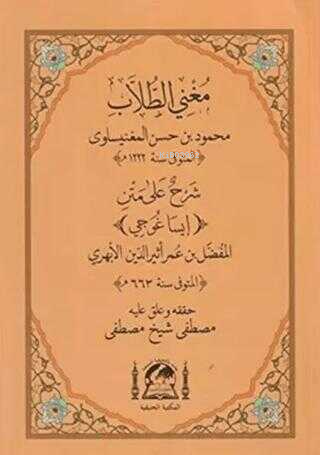 مُغْنِي الطُّلَّابِ
محمود بن حسن المغنيساوى
﴿المتوفى سنة ١٢٢٢ هـ﴾
شَرْحٌ عَلَى مَتْنِ
﴿إِيسَاغُوجِي﴾
المُفَضَّل بن عُمر أثيرالدّين الأبهري
﴿المتوفى سنة ٦٦٣ هـ﴾
حققه وعلق عليه
مصطفى شيخ مصطفى
المكتبة الحنيفية